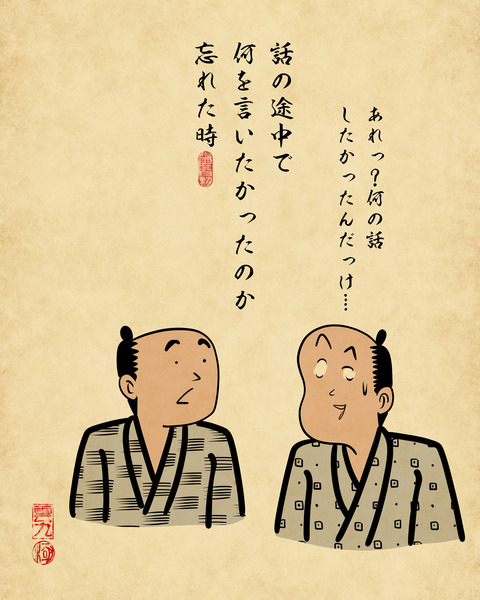 話の途中で
何を言いたかったのか
忘れた時
あれっ?何の話
したかったんだっけ……